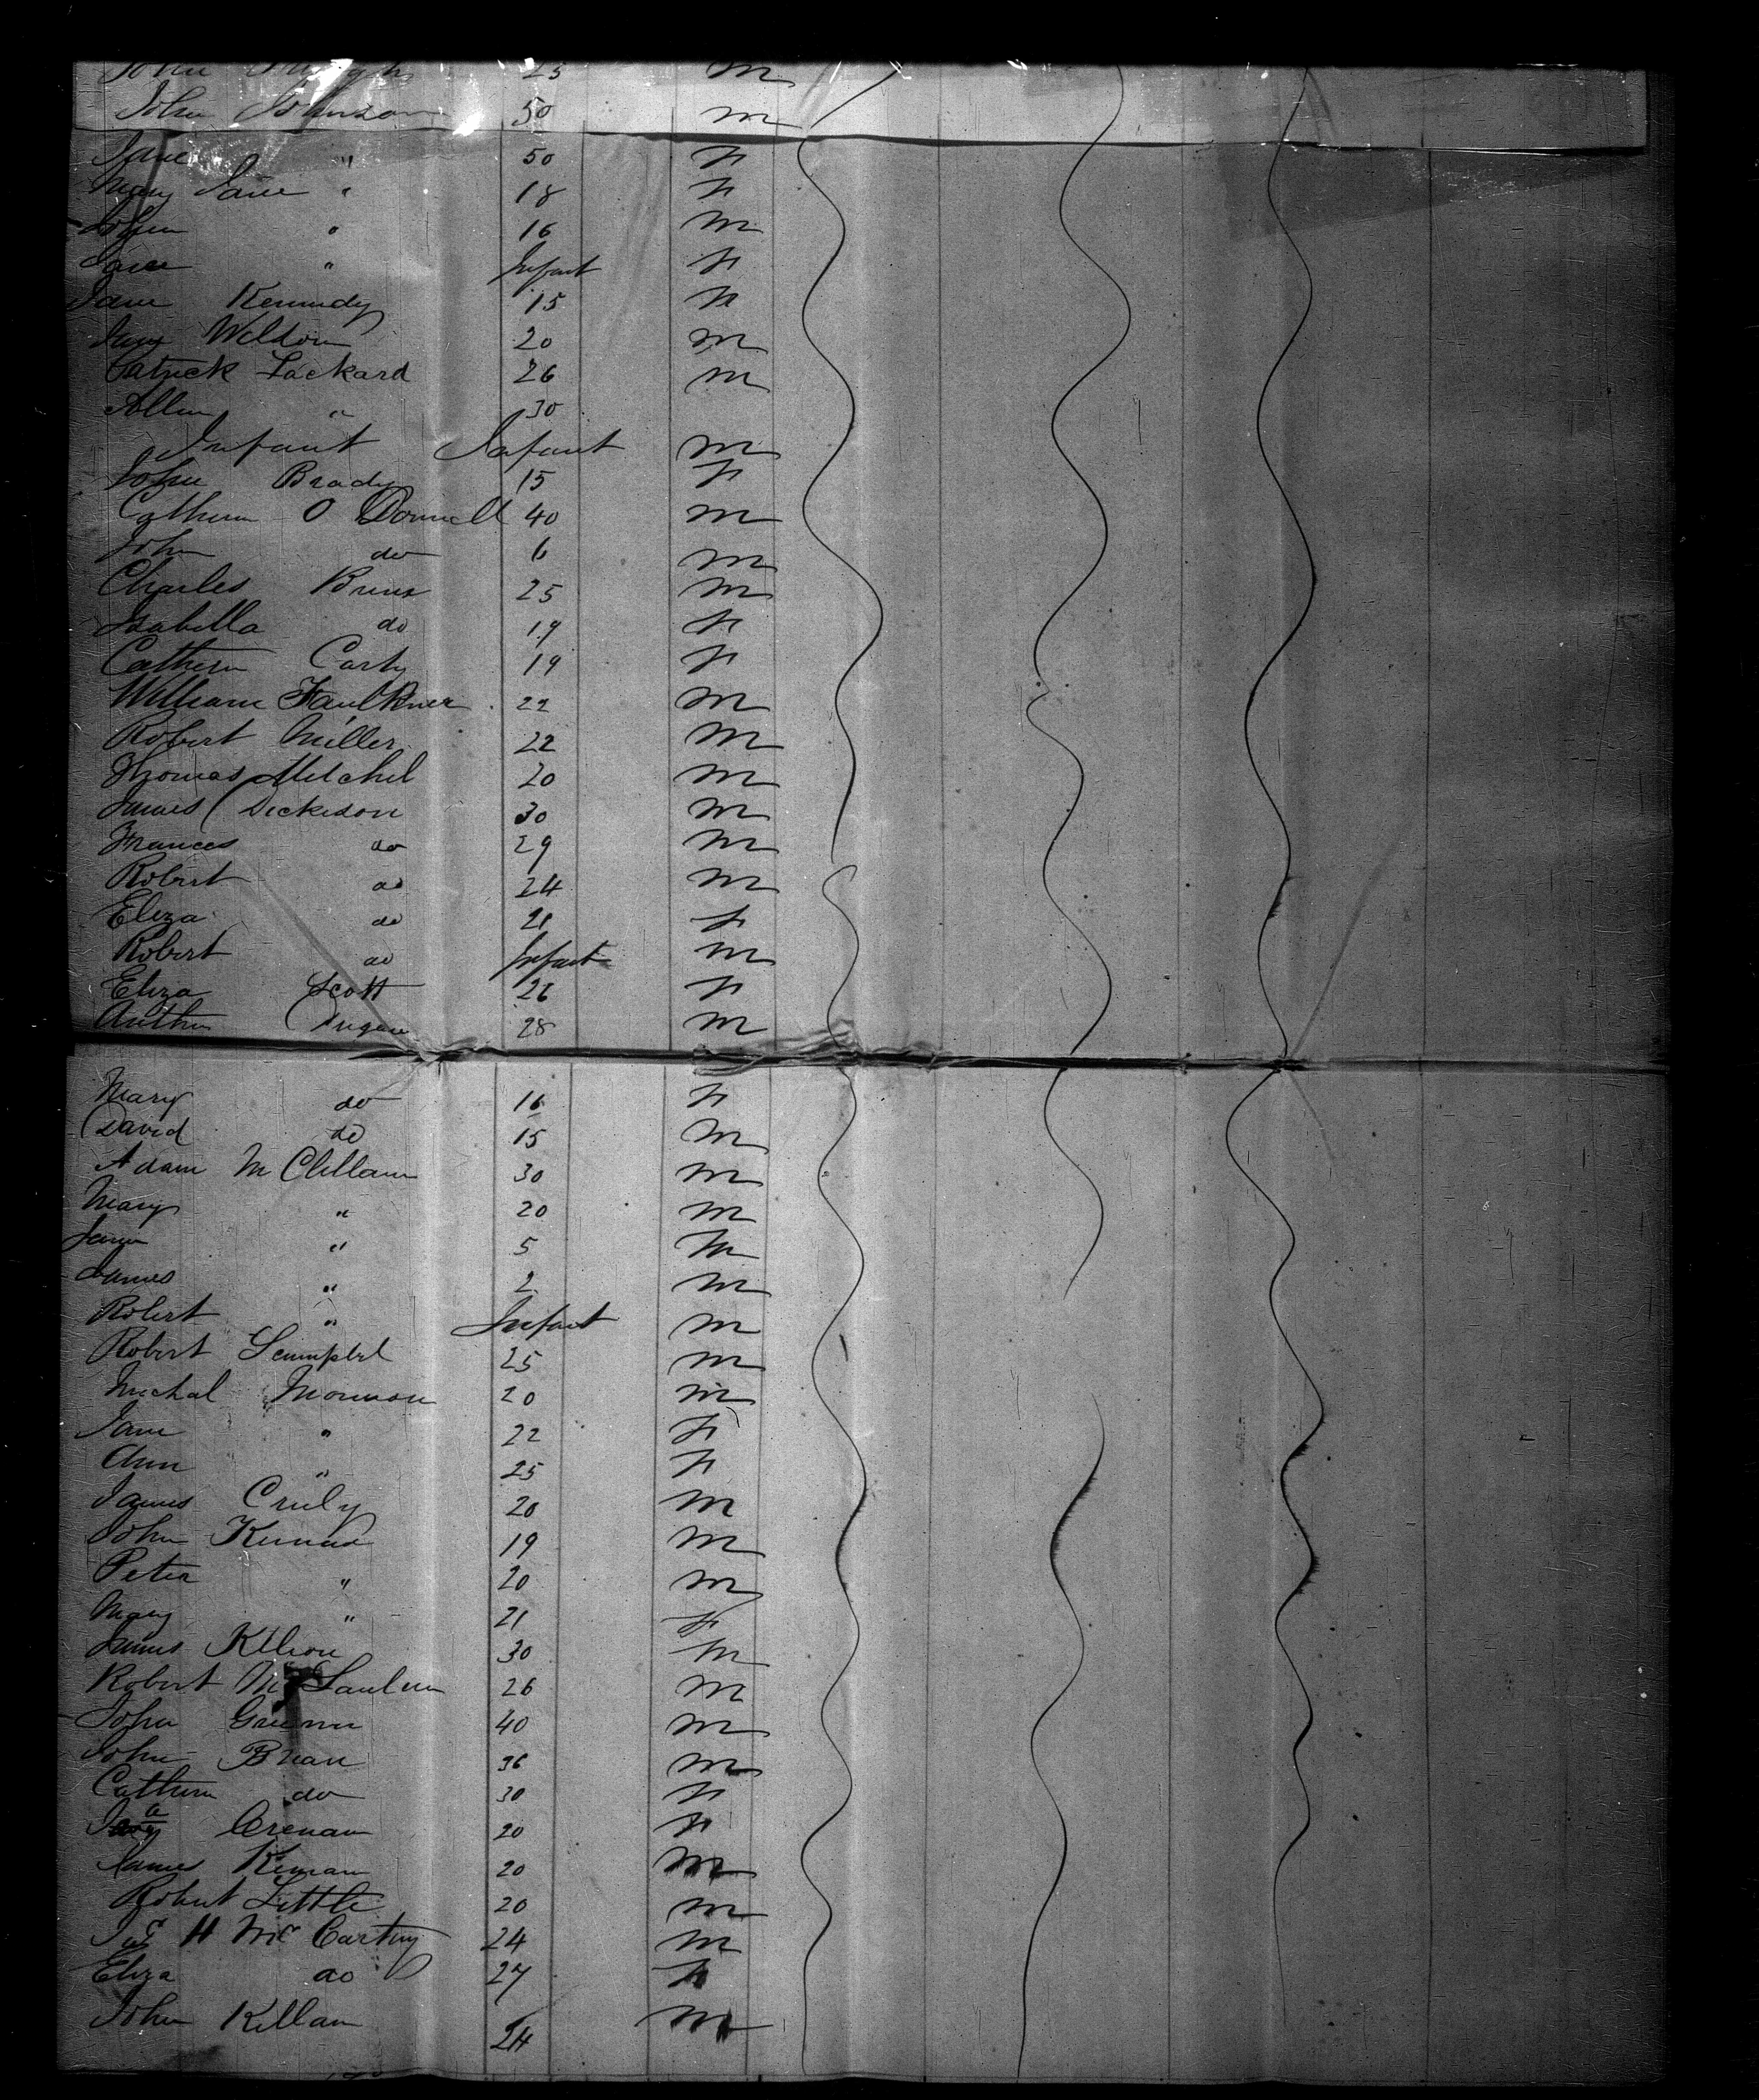 John 25 m
John Johnson 50 m
Jane " 50 f
Mary Jane " 18 f
John " 16 m
Jane " Infant f
Jane Kennedy 15 f
James Weldon 20 m
Patrick Lackard 26 m
Allen " 30
Infant Infant m
John Brady 15 f
Cathern O Donnell 40 m
John do 6 m
Charles Burns 25 m
Isabella do 19 f
Cathern Carty 19 f
William Faulkner 22 m
Robert Miller 22 m
Thomas Mitchel 20 m
James Dickeson 30 m
Frances do 29 m
Robert do 24 m
Eliza do 21 f
Robert do Infant m
Eliza Scott 26 f
Arthur Dugan 28 m
Mary do 16 f
David do 15 m
Adam McClellann 30 m
Mary " 20 m
Jane " 5 m
James " 2 m
Robert " Infant m
Robert 25 m
Michal Morrison 20 m
Jane " 22 f
Ann " 25 f
James Cruly 20 m
John 19 m
Peter " 20 m
Mary " 21 f
James 30 m
Robert 26 m
John 40 m
John Brian 36 m
Cathern do 30 f
Crenan 20 f
James Kernan 20 m
Robert Little 20 m
Jas H McCartney 24 m
Eliza do 27 f
John Killan 24 m